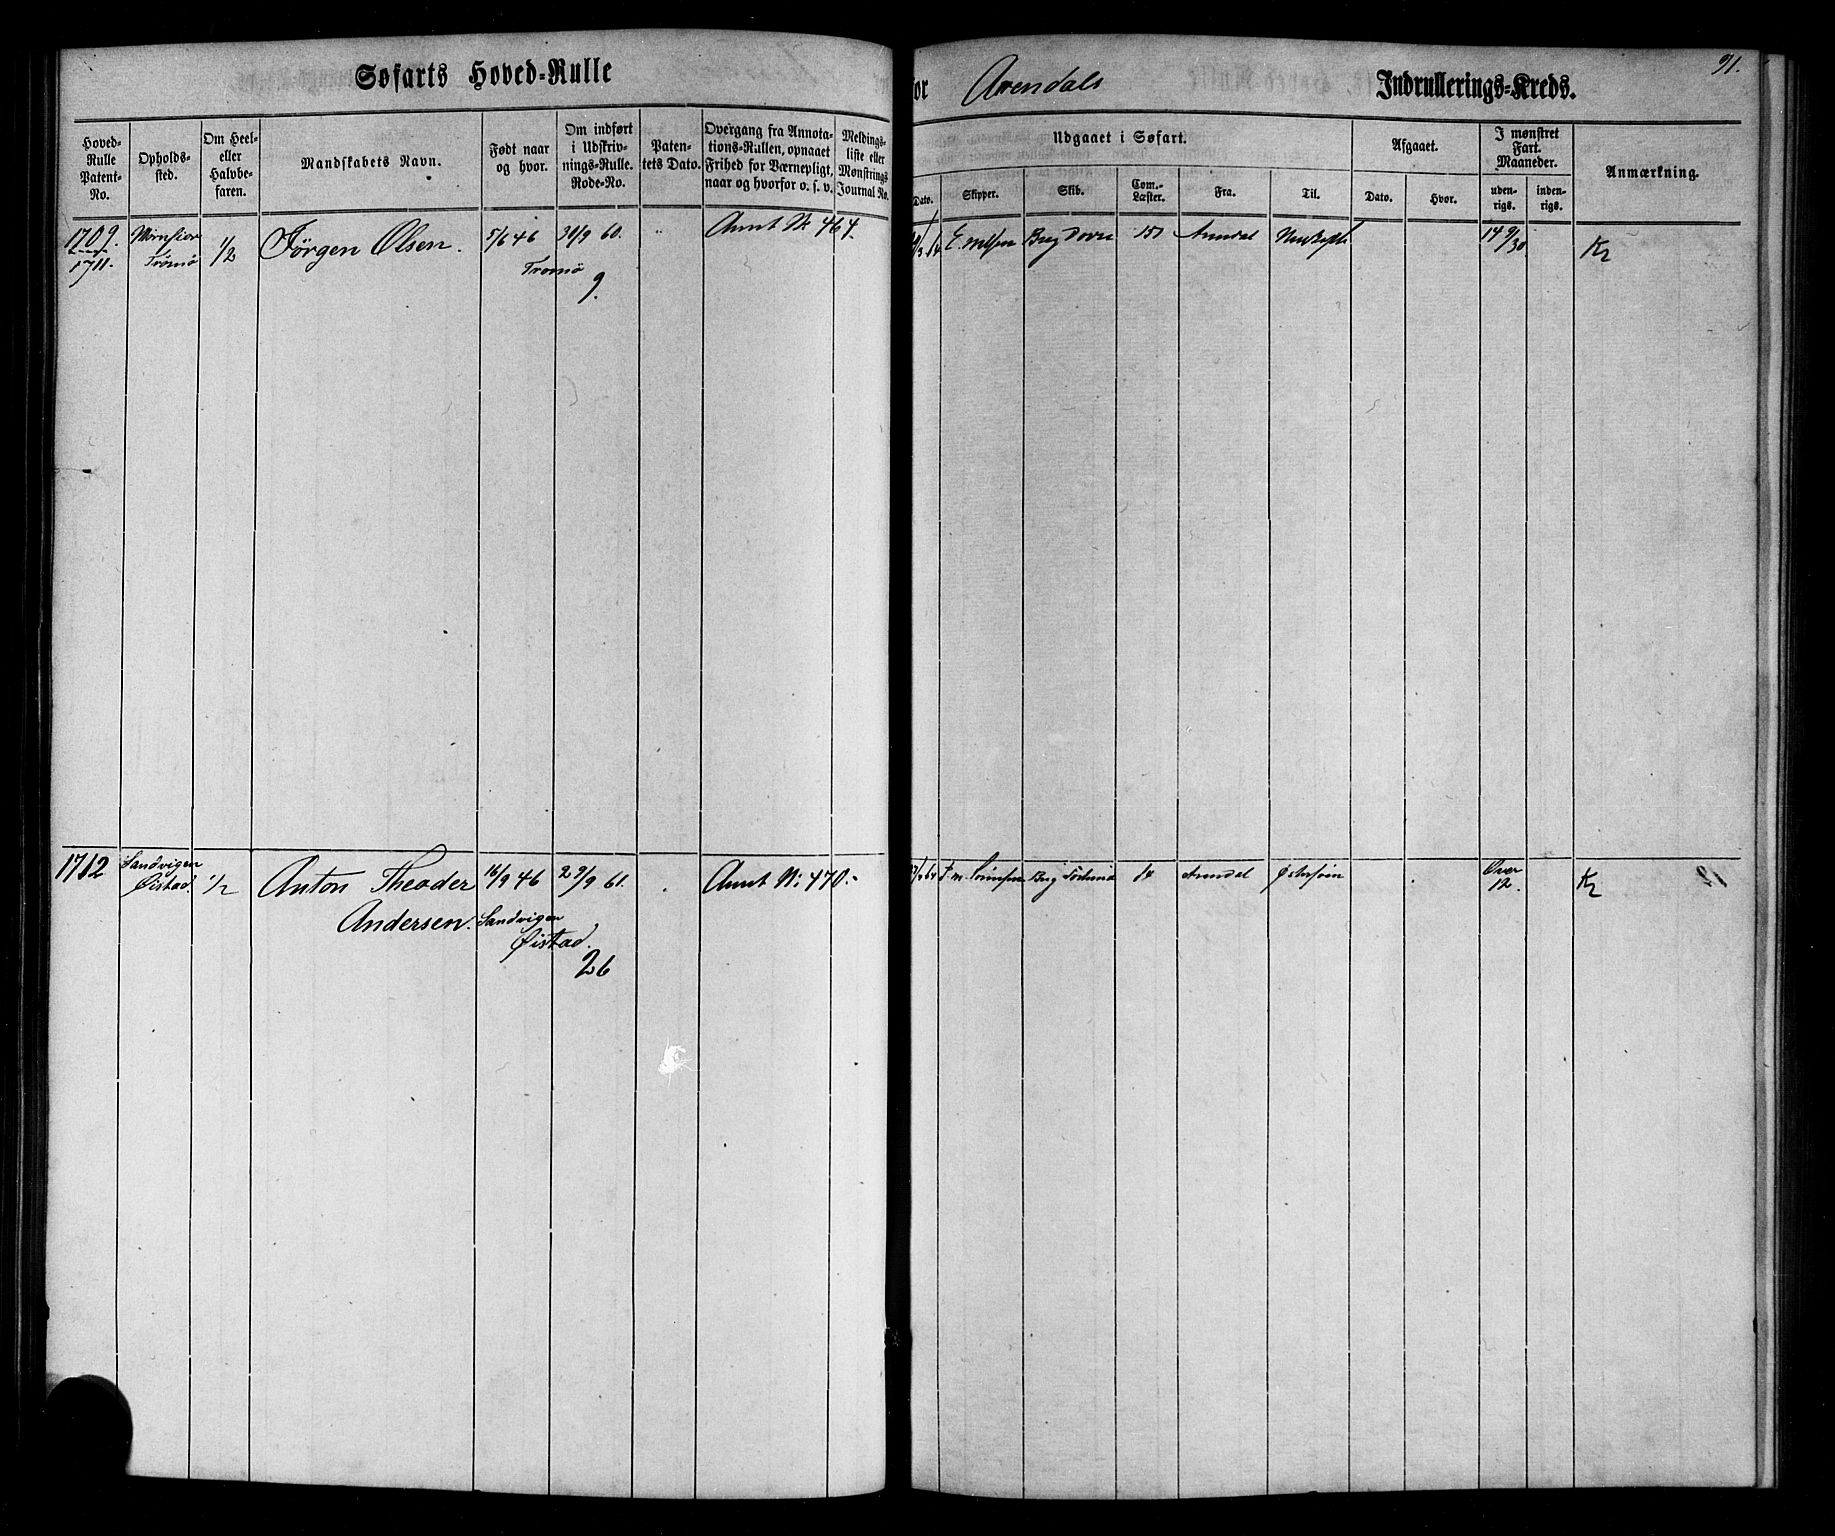 Søfarts Hoved-Rulle
for Arendals Indrullerings-Kreds.
91.
Hoved-Rulle Patent-No.
Opholds-sted.
Om Heel- eller Halvbe-faren.
Mandskabets Navn.
Født naar og hvor.
Om indført i Udskriv-nings-Rulle. Rode-No.
Paten-tets Dato.
Overgang fra Annota-tions-Rullen, opnaaet Frihed for Værnepligt, naar og hvorfor o. s. v.
Meldings-liste eller Mønstrings Journal No.
Udgaaet i Søfart.
Dato.
Skipper.
Skib.
Com.-Læster.
Fra.
Til.
Afgaaet.
Dato.
Hvor.
I mønstret Fart. Maaneder.
uden-rigs.
inden-rigs.
Anmærkning.
1709.
1711.
Tromø
1/2
Jörgen Olsen.
5/6 46
Tromø
9.
Annt № 464.
Brig Dovre
151
Arendal
14 9/30
K2
1712
Sandvigen
Øistad.
1/2
Anton Theoder
Andersen.
16/9 46
Sandvigen
Øistad.
29/9 61.
26
Annt №: 470.
Brig
84
Arendal
Østersøen
Over
12.
K2